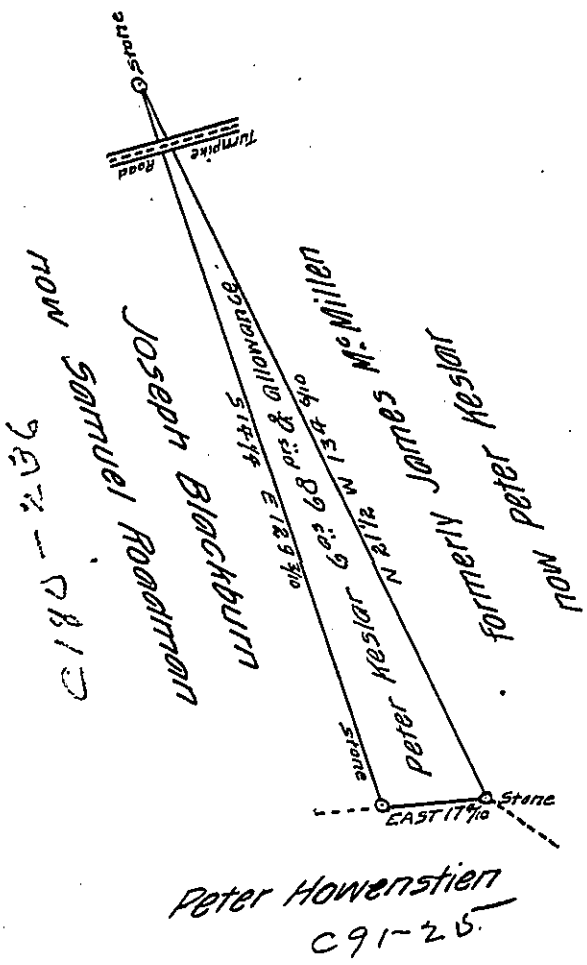 Stone
Turnpike
Road
C180-236
now Samuel Roadman
Joseph Blackburn
S 14 1/4 E 129 3/10
Peter Keslar 6 as 68 prs & allowance
N 21 1/2 W 134 6/10
formerly James McMillen
now Peter Keslar
Stone
Stone
EAST 17 4/10
Peter Howenstien
C91-25